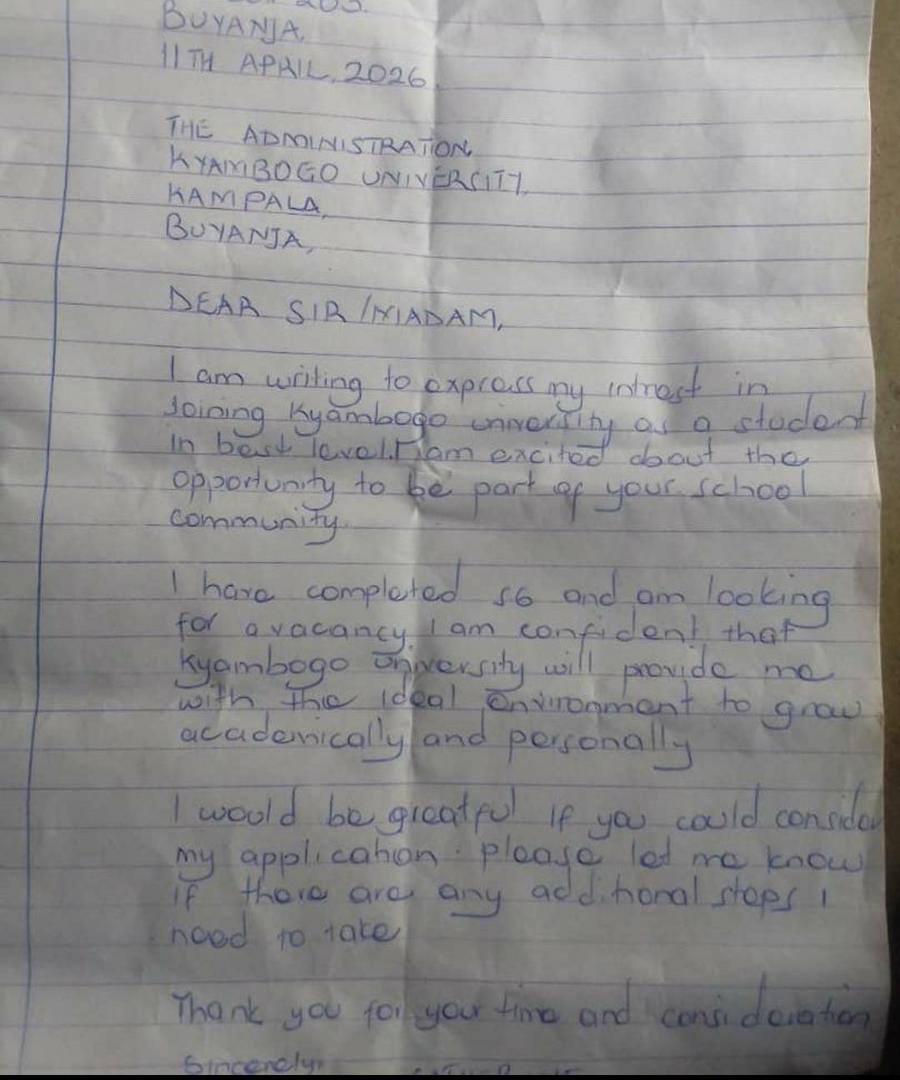 203.
BUYANJA,
11TH APRIL, 2026.
THE ADMINISTRATION,
KYAMBOGO UNIVERSITY,
KAMPALA,
BUYANJA,
DEAR SIR/MADAM,
I am writing to express my intrest in
Joining Kyambogo university as a student
in best level. I am excited about the
opportunity to be part of your school
community.
I have completed s6 and am looking
for a vacancy. I am confident that
Kyambogo university will provide me
with the ideal environment to grow
academically and personally
I would be greatful if you could consider
my application. please let me know
if there are any additional steps I
need to take
Thank you for your time and consideration
Sincerely,